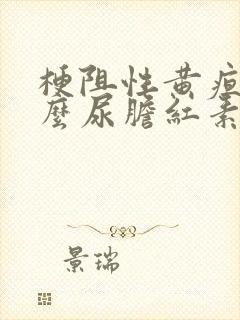 梗阻性黄疸
麼尿膽紅素
景瑞